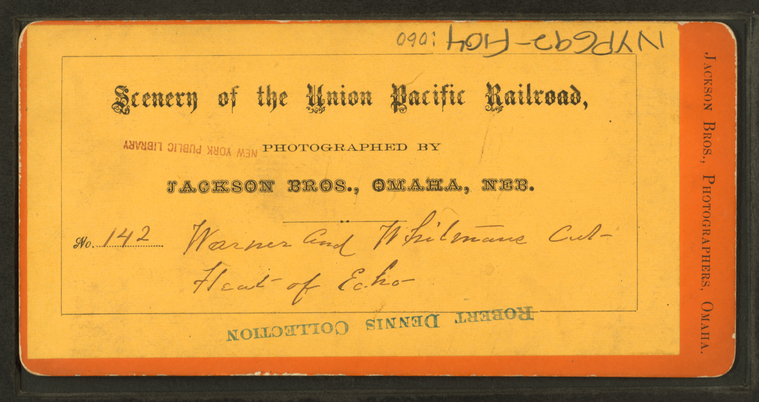 NYPG92-F104
060;
Scenery of the Union Pacific Railroad,
NEW YORK PUBLIC LIBRARY
PHOTOGRAPHED BY
JACKSON BROS., OMAHA, NEB.
No. 142 Warner and Whitmans Cut-
of Echo
ROBERT DENNIS COLLECTION
JACKSON BROS., PHOTOGRAPHERS, OMAHA.